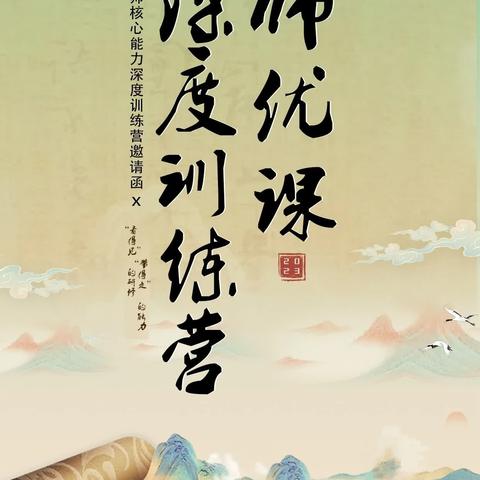 师优课
2023
深度训练营
师核心能力深度训练营邀请函 x
“看得见”
“的研修
带得走”
的能力